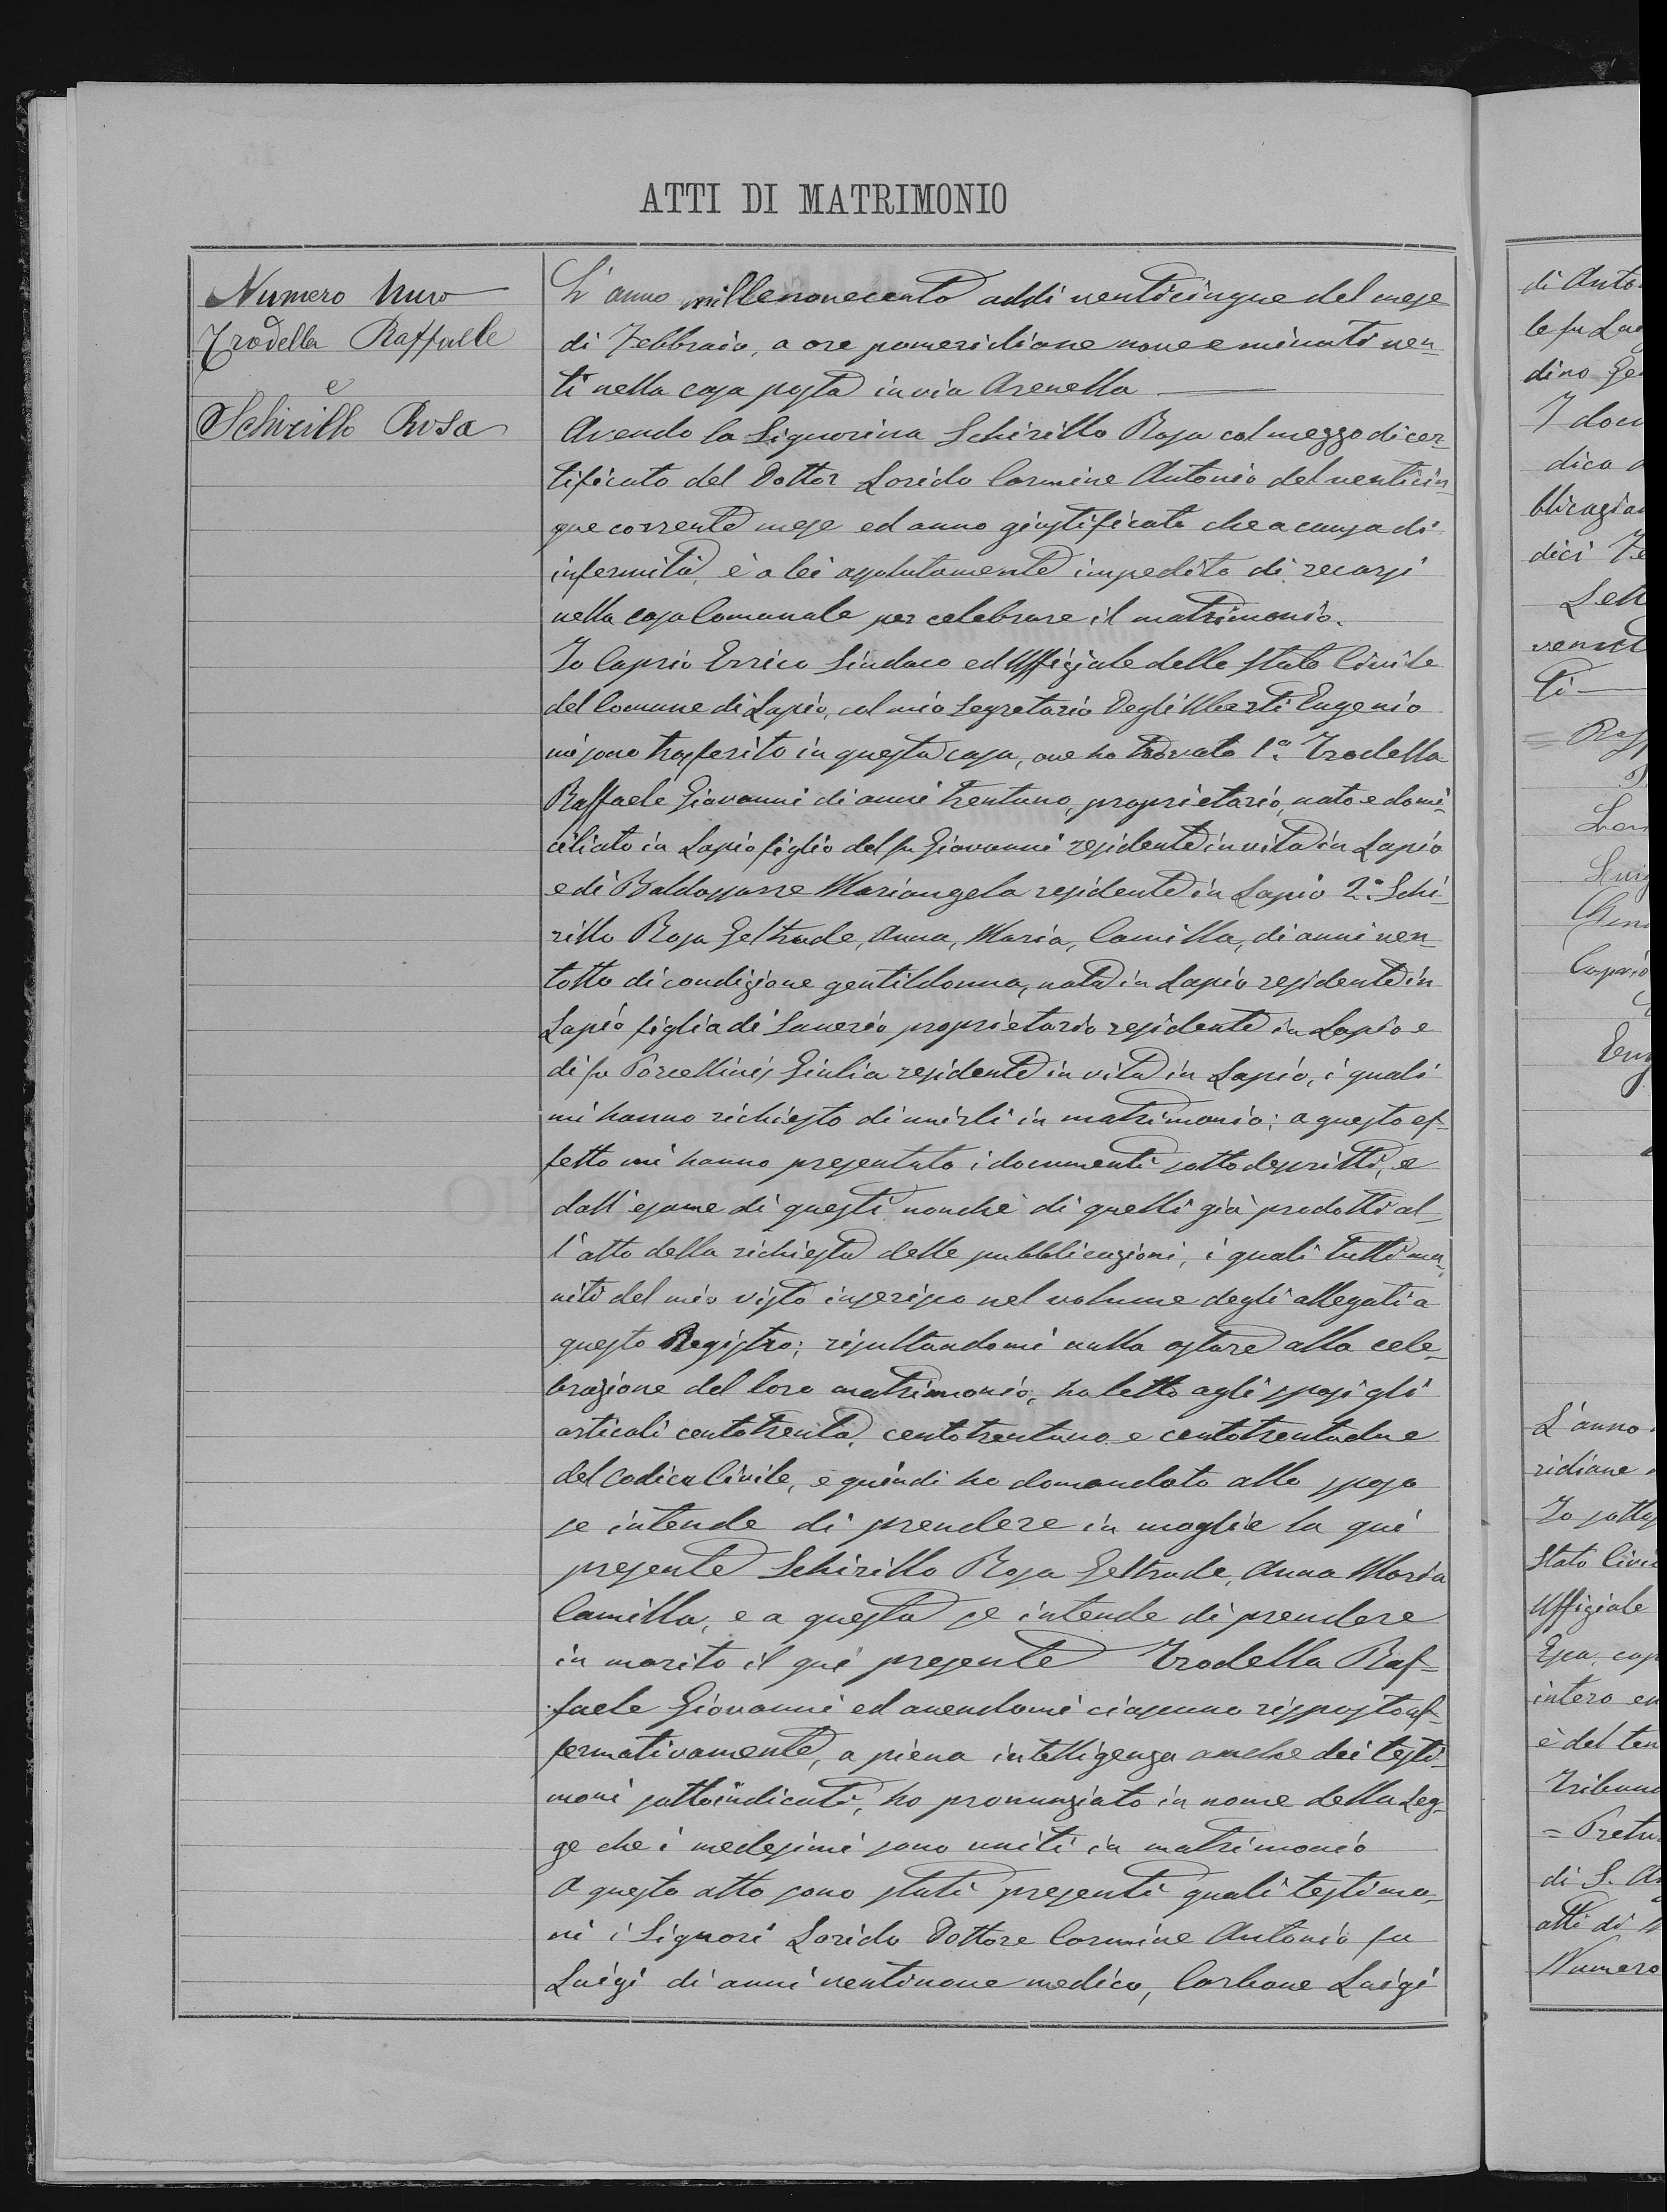 ATTI DI MATRIMONIO
Numero Uno
Trodella Raffaele
e
Schirillo Rosa
L'anno millenovecento addi venticinque del mese
di Febbraio, a ore pomeridiane nove e minuti ven-
ti nella casa posta in via Arenella
Avendo la Signorina Schirillo Rosa col mezzo di cer-
tificato del Dottor Lorido Carmine Antonio del venticin-
que corrente mese ed anno giustificato che a causa di
infermità, è a lei assolutamente impedito di recarsi
nella casa Comunale per celebrare il matrimonio.
Io Caprio Errico Sindaco ed Uffiziale dello Stato Civile
del Comune di Lapio, col mio Segretario Degli Uberti Eugenio
mi sono trasferito in questa casa, ove ho trovato 1.° Trodella
Raffaele Giovanni di anni trentuno, proprietario, nato e domi-
ciliato in Lapio figlio del fu Giovanni residente in vita in Lapio
e di Baldassarre Mariangela residente in Lapio 2.° Schi-
rillo Rosa Geltrude, Anna, Maria, Camilla, di anni ven-
totto di condizione gentildonna, nata in Lapio residente in
Lapio figlia di Saverio proprietario residente in Lapio e
di fu Porcellinis Giulia residente in vita in Lapio, i quali
mi hanno richiesto di unirli in matrimonio; a questo ef-
fetto mi hanno presentato i documenti sotto descritti, e
dall'esame di questi nonchè di quelli già prodotti al-
l'atto della richiesta delle pubblicazioni, i quali tutti mu-
niti del mio visto inserisco nel volume degli allegati a
questo Registro; risultandomi nulla ostare alla cele-
brazione del loro matrimonio, ho letto agli sposi gli
articoli centotrenta, centotrentuno e centotrentadue
del Codice Civile, e quindi ho domandato allo sposo
se intende di prendere in moglie la qui
presente Schirillo Rosa Geltrude, Anna Maria
Camilla, e a questa se intende di prendere
in marito il qui presente Trodella Raf=
faele Giovanni ed avendomi ciascuno risposto af-
fermativamente, a piena intelligenza anche dei testi-
moni sottoindicati, ho pronunziato in nome della Leg-
ge che i medesimi sono uniti in matrimonio
A questo atto sono stati presenti quali testimo-
ni i Signori Lorido Dottore Carmine Antonio fu
Luigi di anni ventinove medico, Carbone Luigi
di Anto
le fu Lu
dino Ge
I docu
dica
blicazion
dici Fe
Lett
Ti
Raff
Luig
Caprio
Eug
L'anno
ridiane
Io sotto
Stato Civi
Uffiziale
intero
è del ten
Tribuna
= Pretu
di S. A
atti di
Numero